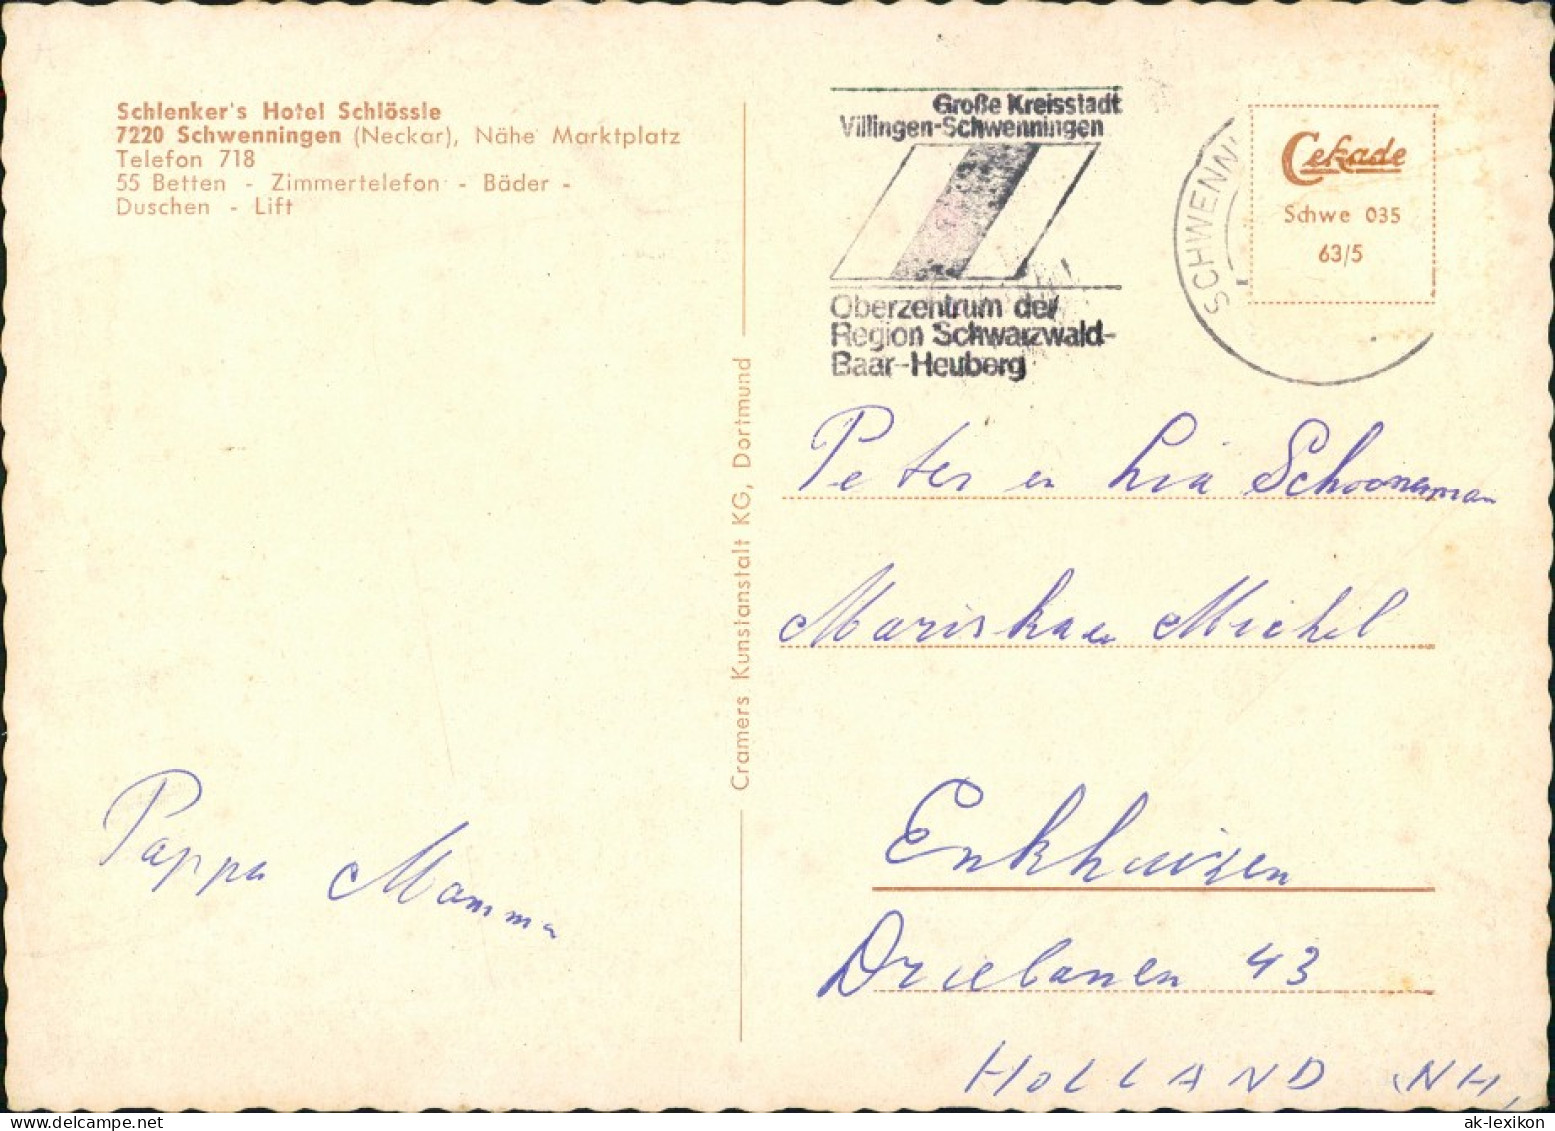 Schlenker's Hotel Schlössle
7220 Schwenningen (Neckar), Nähe Marktplatz
Telefon 718
55 Betten - Zimmertelefon - Bäder -
Duschen - Lift
Pappa Mamma
Cramers Kunstanstalt KG, Dortmund
Große Kreisstadt
Villingen-Schwenningen
Oberzentrum der
Region Schwarzwald-
Baar-Heuberg
SCHWENN
Cekade
Schwe 035
63/5
Peter en Lia Schooneman
Mariska en Michel
Enkhuizen
Driebanen 43
HOLLAND NH,
ak-lexikon.com